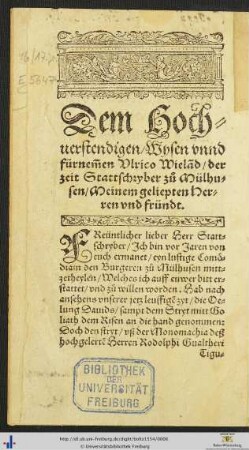 Dem Hoch⸗
uerstendigen/Wysen vnnd
fürnem̃en Vlrico Wielãd/der
zeit Stattschryber zů Mülhu⸗
sen/Meinem geliepten Her⸗
ren vnd fründt.
FReüntlicher lieber Herr Statt⸗
schryber/Ich bin vor Jaren von
euch ermanet/ein lustige Comö⸗
diam den Burgeren zů Mülhusen mitt⸗
zetheylen/Welches ich auff euwer bitt er⸗
stattet/vnd zů willen worden. Hab nach
ansehens vnserer jetz leuffigē zyt/die Oe⸗
lung Dauids/sampt dem Stryt mitt Go⸗
liath dem Risen an die hand genommen:
Doch den stryt/vß der Monomachia deß
hochgelertē Herren Rodolphi Gualtheri
Tigu⸗
BIBLIOTHEK
DER
UNIVERSITÄT
FREIBURG
© Universitätsbibliothek Freiburg
Baden-Württemberg